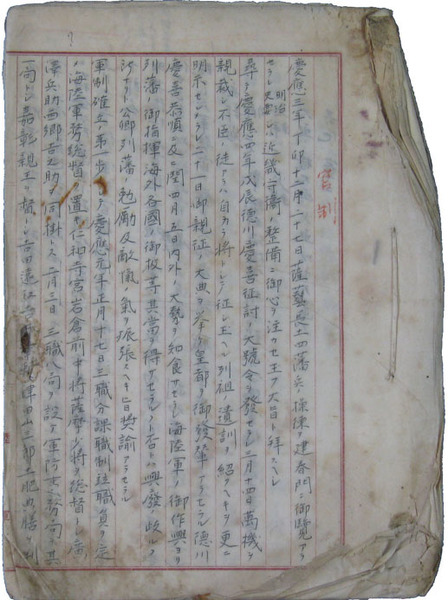 官制
慶應三年丁卯十二月二十七日薩藝長土四藩兵ノ操練ヲ建春門ニ御覽アラ
セラレ 近畿守衛ノ整備ニ御心ヲ注カセ玉フ大旨ト拜ヘシ
明治
尋テ慶應四年戊辰德川慶喜征討ノ大號令ヲ發セラレ三月十四日萬機ヲ
親裁シ不臣ノ徒アレハ自カラ將トシテ征シ玉ヘル列祖ノ遺訓ヲ紹クヘキヲ更ニ
明示セラレ二十一日御親征ノ大典ヲ擧ケ皇都ヲ御發輦アラセラル德川
慶喜恭順ニ及ヒ閏四月五日内外ノ大勢ヲ知食サセラレ海陸軍ノ御作興ヨリ
列藩ノ御指揮海外各國ノ御扱等其當ヲ得サセラルヽト否トハ興發
公卿列藩ノ勉勵及敵愾ノ氣振張スヘキ旨奨諭アラセラル
軍制確立ノ第一歩 慶應元年正月十七日三職分課職制並職員ヲ定
海陸軍務總督ヲ置キ仁和寺宮岩倉前中將薩摩少將ヲ總督トシ廣
澤兵助西郷吉之助 同掛トス二月三日三職八局ヲ設ケ軍防事務局
一局トシ嘉彰親王ヲ督トシ吉田遠江 津田山三郎土肥